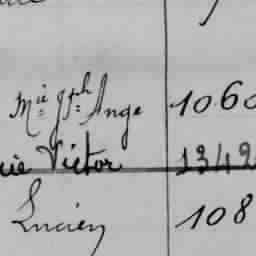 Mie Jph Ange 1060
ie Victor 1342
Lucien 108